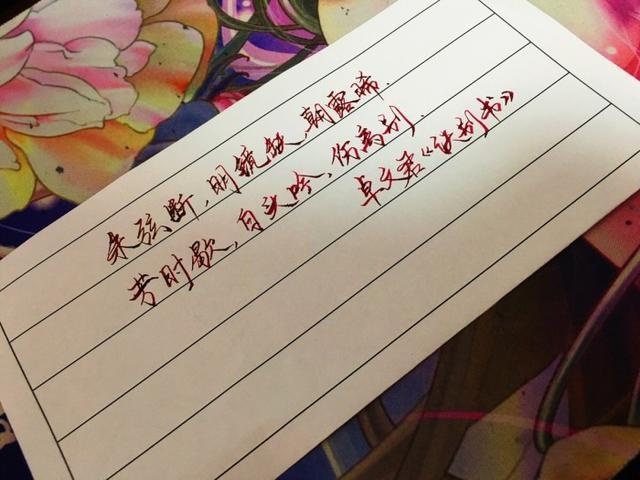 朱弦断，明镜缺，朝露晞，
芳时歇，白头吟，伤离别，
卓文君《诀别书》